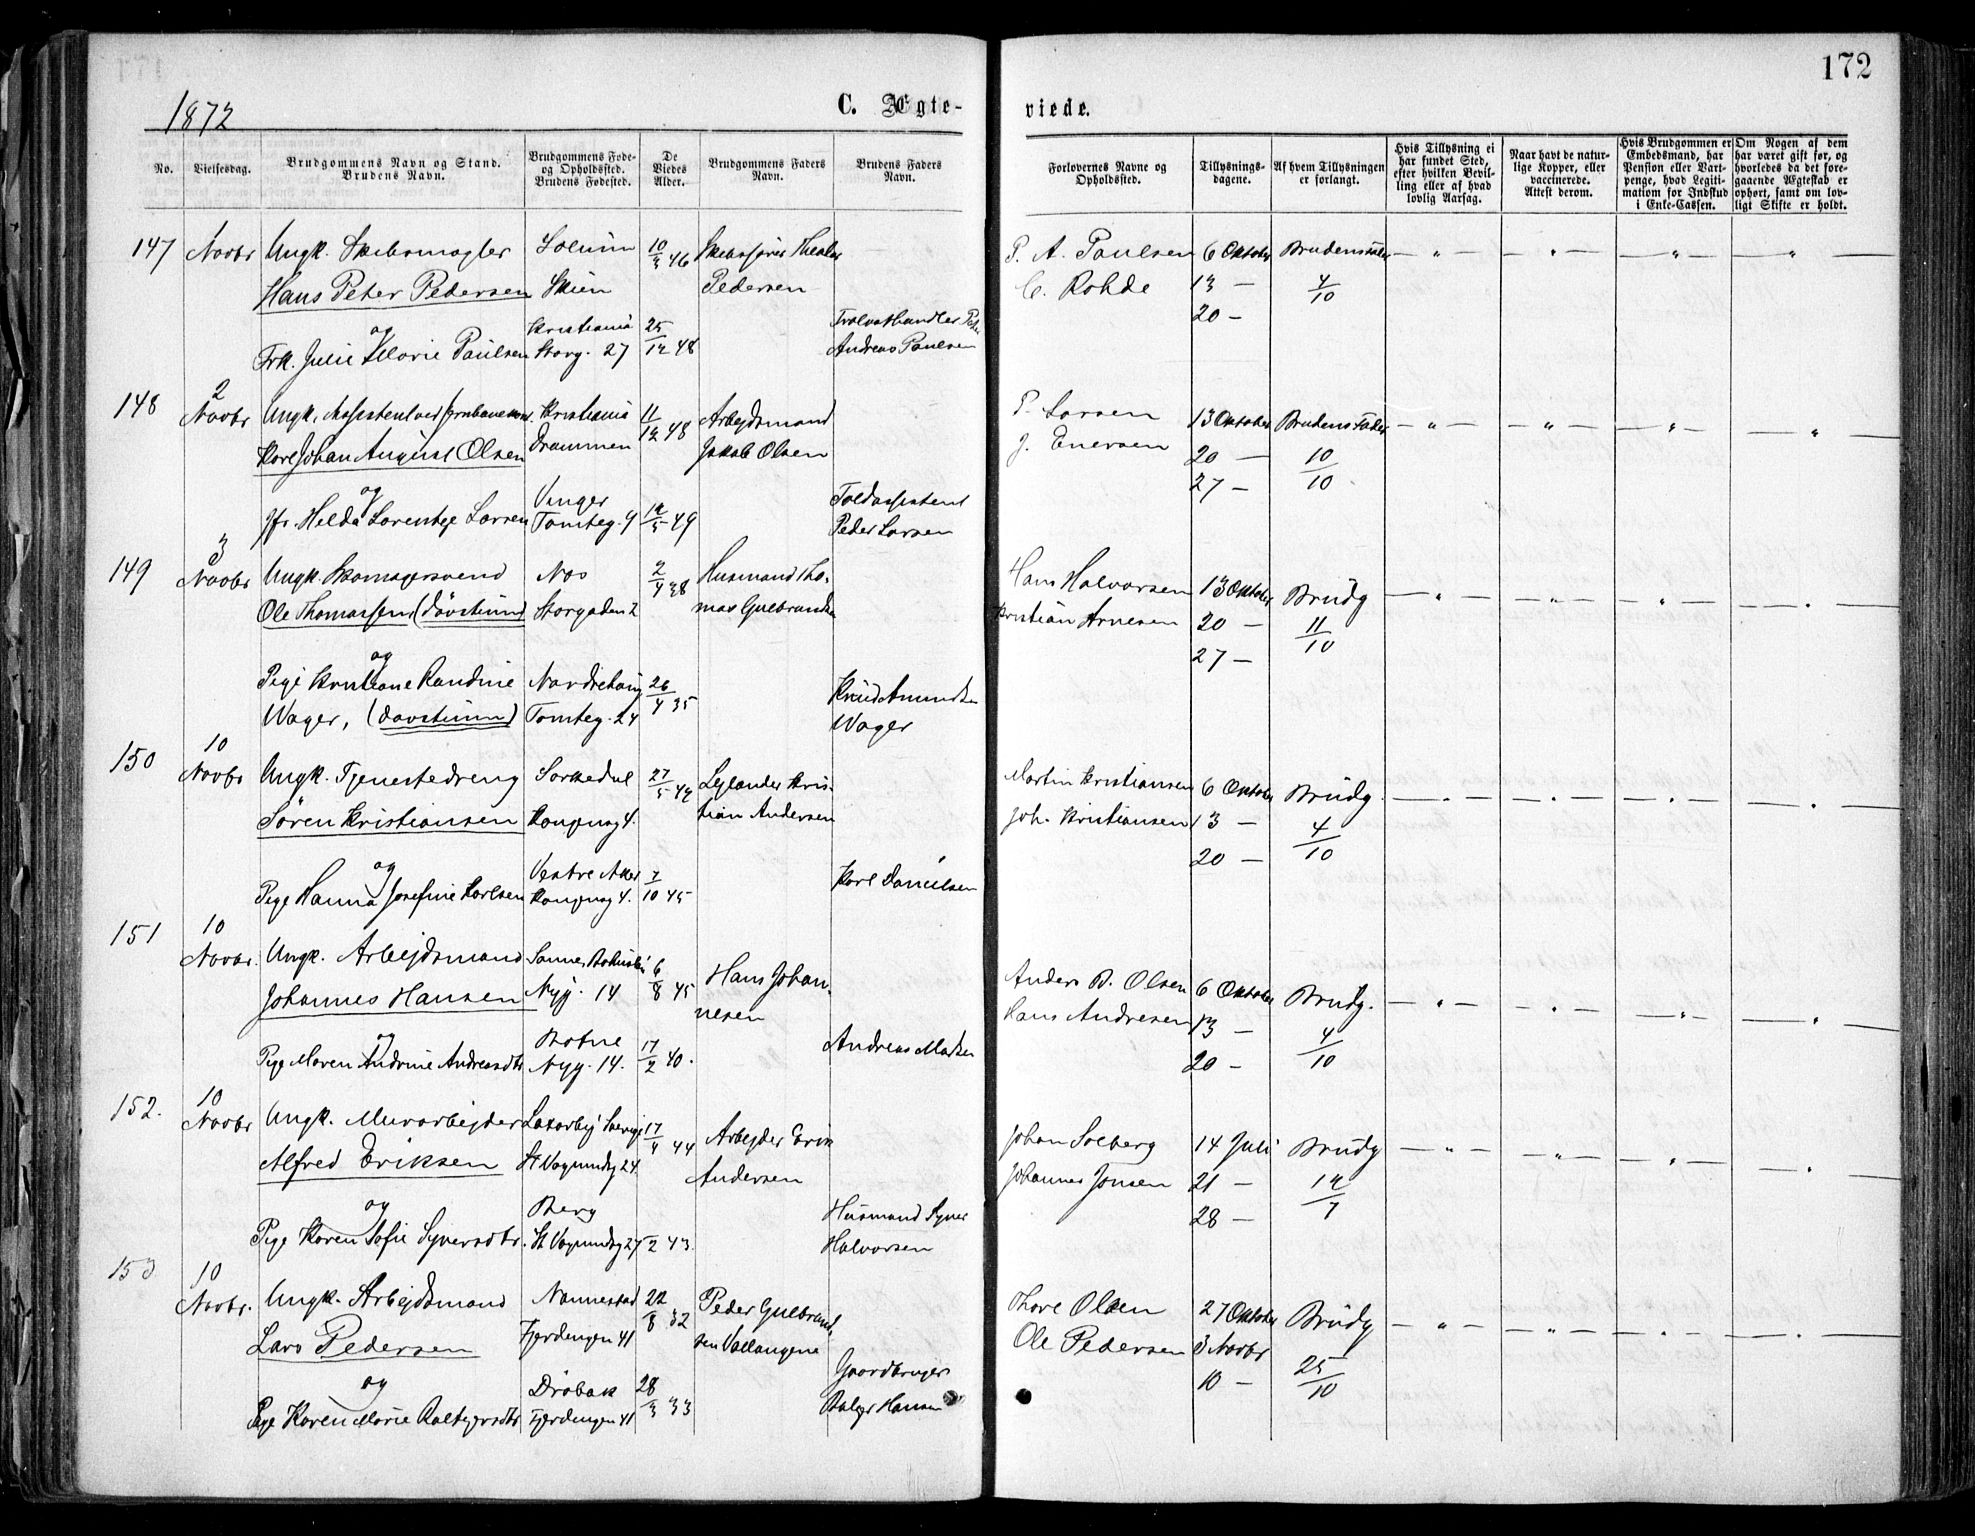 172
1872
C. Ægte-
viede.
No.
Vielsesdag.
Brudgommens Navn og Stand.
Brudens Navn.
Brudgommens Føde-
og Opholdssted.
Brudens Fødested.
De
Viedes
Alder.
Brudgommens Faders
Navn.
Brudens Faders
Navn.
Forlovernes Navne og
Opholdssted.
Tillysnings-
dagene.
Af hvem Tillysningen
er forlangt.
Hvis Tillysning ei
har fundet Sted,
efter hvilken Bevil-
ling eller af hvad
lovlig Aarsag.
Naar havt de natur-
lige Kopper, eller
vaccinerede.
Attest derom.
Hvis Brudgommen er
Embedsmand, har
Pension eller Vart-
penge, hvad Legiti-
mation for Indskud
i Enke-Cassen.
Om Nogen af dem
har været gift før, og
hvorledes da det fore-
gaaende Ægteskab er
ophørt, samt om lov-
ligt Skifte er holdt.
147 Novbr Ungk. Skibsmægler Solum 10/3 46 Skibsfører P. A. Paulsen 6 Oktober Brudens Fader
Hans Peter Pedersen Skien Pedersen C. Rohde 13 — 4/10
20 —
og Kristiania
Frk. Julie Marie Paulsen Storg. 27 25/12 48 Andreas Paulsen
148 2 Novbr Ungk. Assistent ved Kristiania 11/12 48 Arbejdsmand P. Larsen 13 Oktober Brudens Fader
Karl Johan August Olsen Drammen Jakob Olsen J. Enersen 20 — 10/10
27 —
og Vinger Toldassistent
Jfr. Helda Larsen Tomteg. 9 12/5 49 Peder Larsen
149 3 Novbr Ungk. Skomagersvend Næs 2/4 38 Husmand Tho- Hans Halvorsen 13 Oktober Brudg
Ole Thomassen (døvstum) Storgaden 2 mas Gulbrandsen Kristian Arnesen 20 — 11/10
27 —
og
Pige Kristiane Randine 26/4 35 Knud Amundsen
Wager, (døvstum) Tomteg. 24 Wager
150 10 Novbr Ungk. Tjenestedreng Sørkedal 27/5 42 Lejlænder Kris- Martin Kristiansen 6 Oktober Brudg.
Søren Kristiansen 4. tian Andersen Joh. Kristiansen 13 — 4/10
20 —
og Vestre Aker
Pige Hanna Josefine Karlsen 4. 7/10 45 Karl Danielsen
151 10 Novbr. Ungk. Arbejdsmand 6/8 45 Hans Johan- Anders B. Olsen 6 Oktober Brudg.
Johannes Hansen Nyg. 14 nesen Hans Andresen 13 — 4/10
20 —
og Botne
Pige Maren Andrine Andreasdtr Nyg. 14. 17/2 40. Andreas
152. 10 Novbr Ungk. Murarbejder Sverige 17/4 44 Arbejder Erik Johan Solberg 14 Juli Brudg
Alfred Eriksen 24. Andersen Johannes Jonsen 21 — 12/7
28 —
og Berg Husmand Syver
Pige Karen Sofie Syversdtr. 43. Halvorsen
153 10 Novbr. Ungk. Arbejdsmand Nannestad 22/8 32 Peder Gulbrand- Thore Olsen 27 Oktober Brudg
Lars Pedersen Fjerdingen 41 sen Ole Pedersen 3 Novbr 25/10
10 —
og Drøbak 28/3 33 Gaardbruger
Pige Karen Marie Fjerdingen 41 Hansen